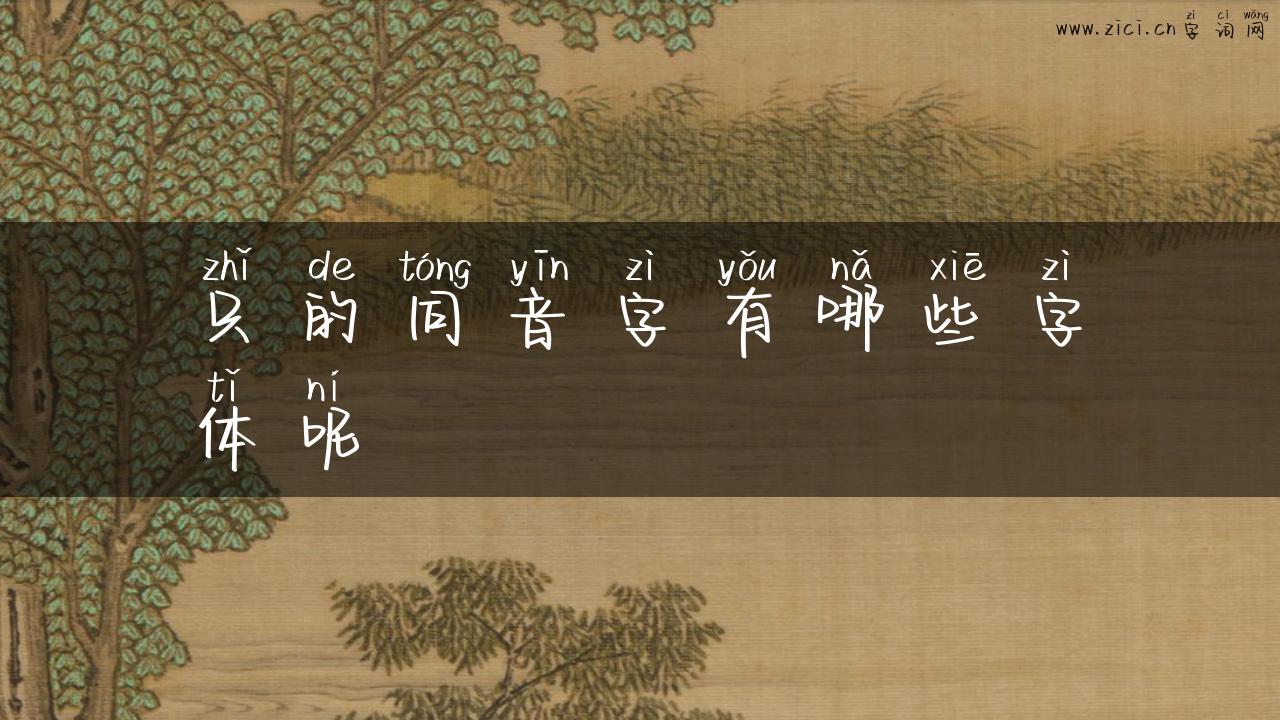 zì cí wǎng
www.zici.cn 字词网
zhǐ de tóng yīn zì yǒu nǎ xiē zì
只的同音字有哪些字
tǐ ní
体呢